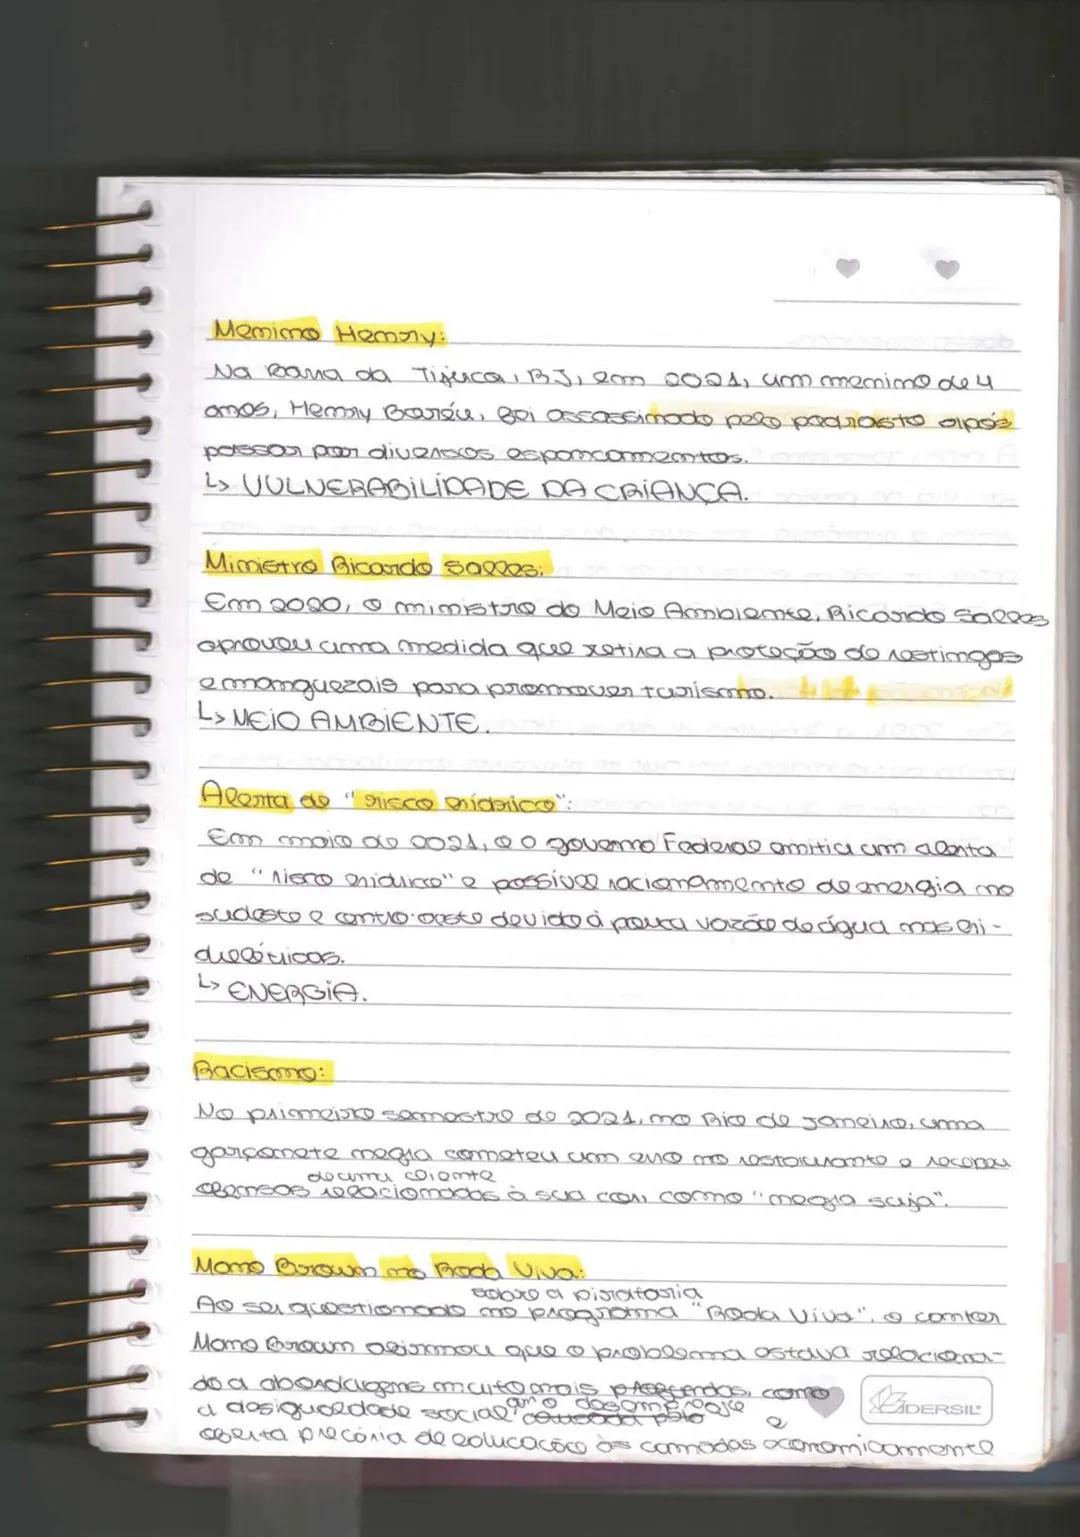 Menino Henry:
Na Barra da Tijuca, RJ, em 2021, um menino de 4
anos, Henry Boréu, foi assassinado pelo padrasto após
passar por diversos espancamentos.
↳ VULNERABILIDADE DA CRIANÇA.
Ministro Ricardo Salles:
Em 2020, o ministro do Meio Ambiente, Ricardo Salles
aprovou uma medida que retira a proteção de restingas
e manguezais para promover turismo.
↳ MEIO AMBIENTE.
Alerta de "risco hídrico":
Em maio de 2021, o governo Federal emitiu um alerta
de "risco hídrico" e possível racionamento de energia no
sudeste e centro-oeste devido à pouca vazão de água nas hi-
drelétricas.
↳ ENERGIA.
Racismo:
No primeiro semestre de 2021, no Rio de Janeiro, uma
garçonete negra cometeu um erro no restaurante e recebeu
de um cliente
ofensas relacionadas à sua cor, como "negra suja".
Mano Brown no Roda Viva:
sobre a pirataria
Ao ser questionado no programa "Roda Viva", o cantor
Mano Brown afirmou que o problema estava relaciona-
do a abordagens muito mais profundas, como
a desigualdade social, o desemprego e
oferta precária de educação às camadas economicamente
DERSIL